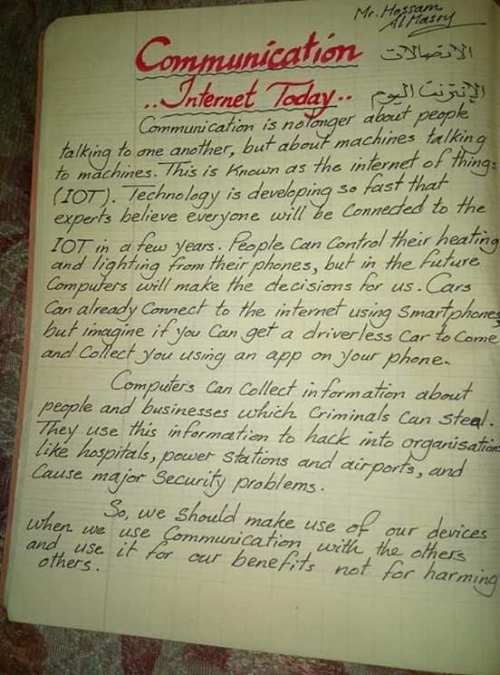 Mr. Hossam
Al Masry
Communication الاتصالات
..Internet Today.. الإنترنت اليوم
Communication is no longer about people
talking to one another, but about machines talking
to machines. This is known as the internet of things
(IOT). Technology is developing so fast that
experts believe everyone will be connected to the
IOT in a few years. People can control their heating
and lighting from their phones, but in the future
Computers will make the decisions for us. Cars
Can already connect to the internet using smartphones,
but imagine if you Can get a driverless car to come
and collect you using an app on your phone.
Computers can collect information about
people and businesses which criminals can steal.
They use this information to hack into organisation
like hospitals, power stations and airports, and
Cause major security problems.
So, we should make use of our devices
when we use communication with the others
and use it for our benefits not for harming
others.